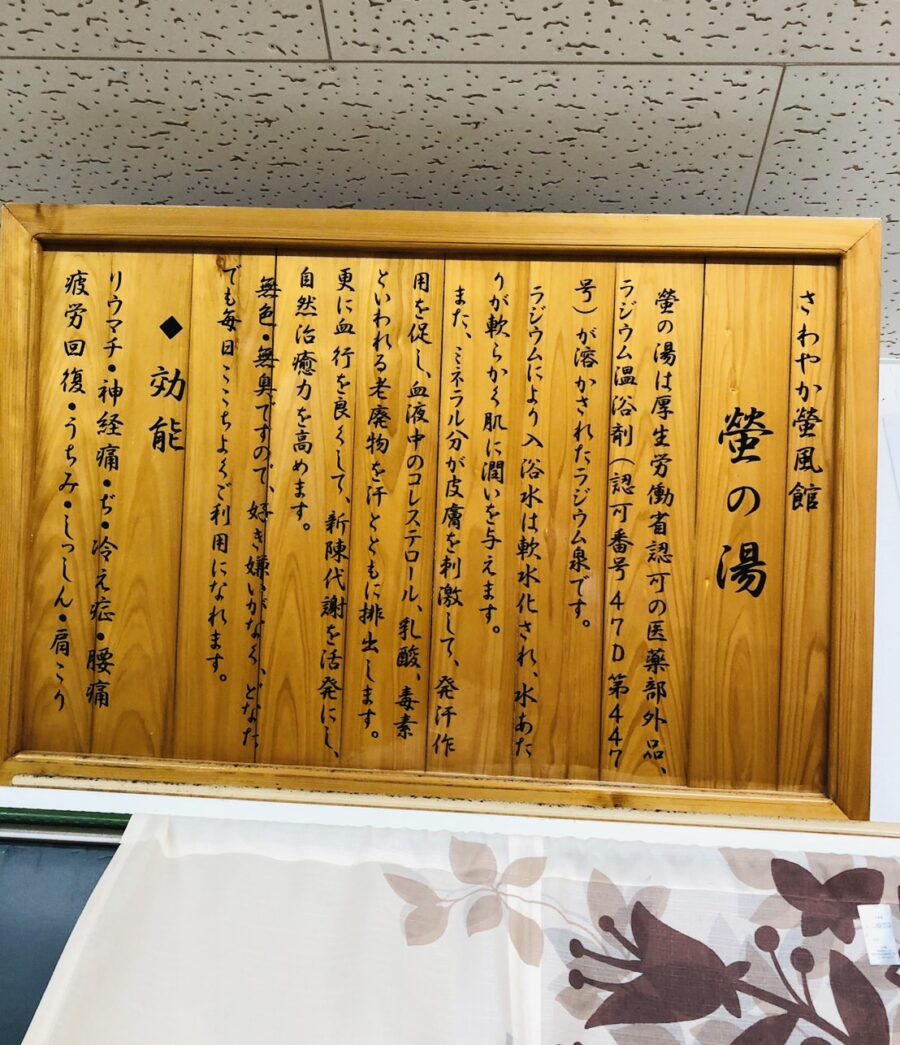 さわやか螢風館
螢の湯
螢の湯は厚生労働省認可の医薬部外品、
ラジウム温浴剤(認可番号47D第447
号)が溶かされたラジウム泉です。
ラジウムにより入浴水は軟水化され、水あた
りが軟らかく肌に潤いを与えます。
また、ミネラル分が皮膚を刺激して、発汗作
用を促し、血液中のコレステロール、乳酸、毒素
といわれる老廃物を汗とともに排出します。
更に血行を良くして、新陳代謝を活発にし、
自然治癒力を高めます。
無色・無臭ですので、好き嫌いがなく、どなた
でも毎日ここちよくご利用になれます。
◆効能
リウマチ・神経痛・ぢ・冷え症・腰痛
疲労回復・うちみ・しっしん・肩こり